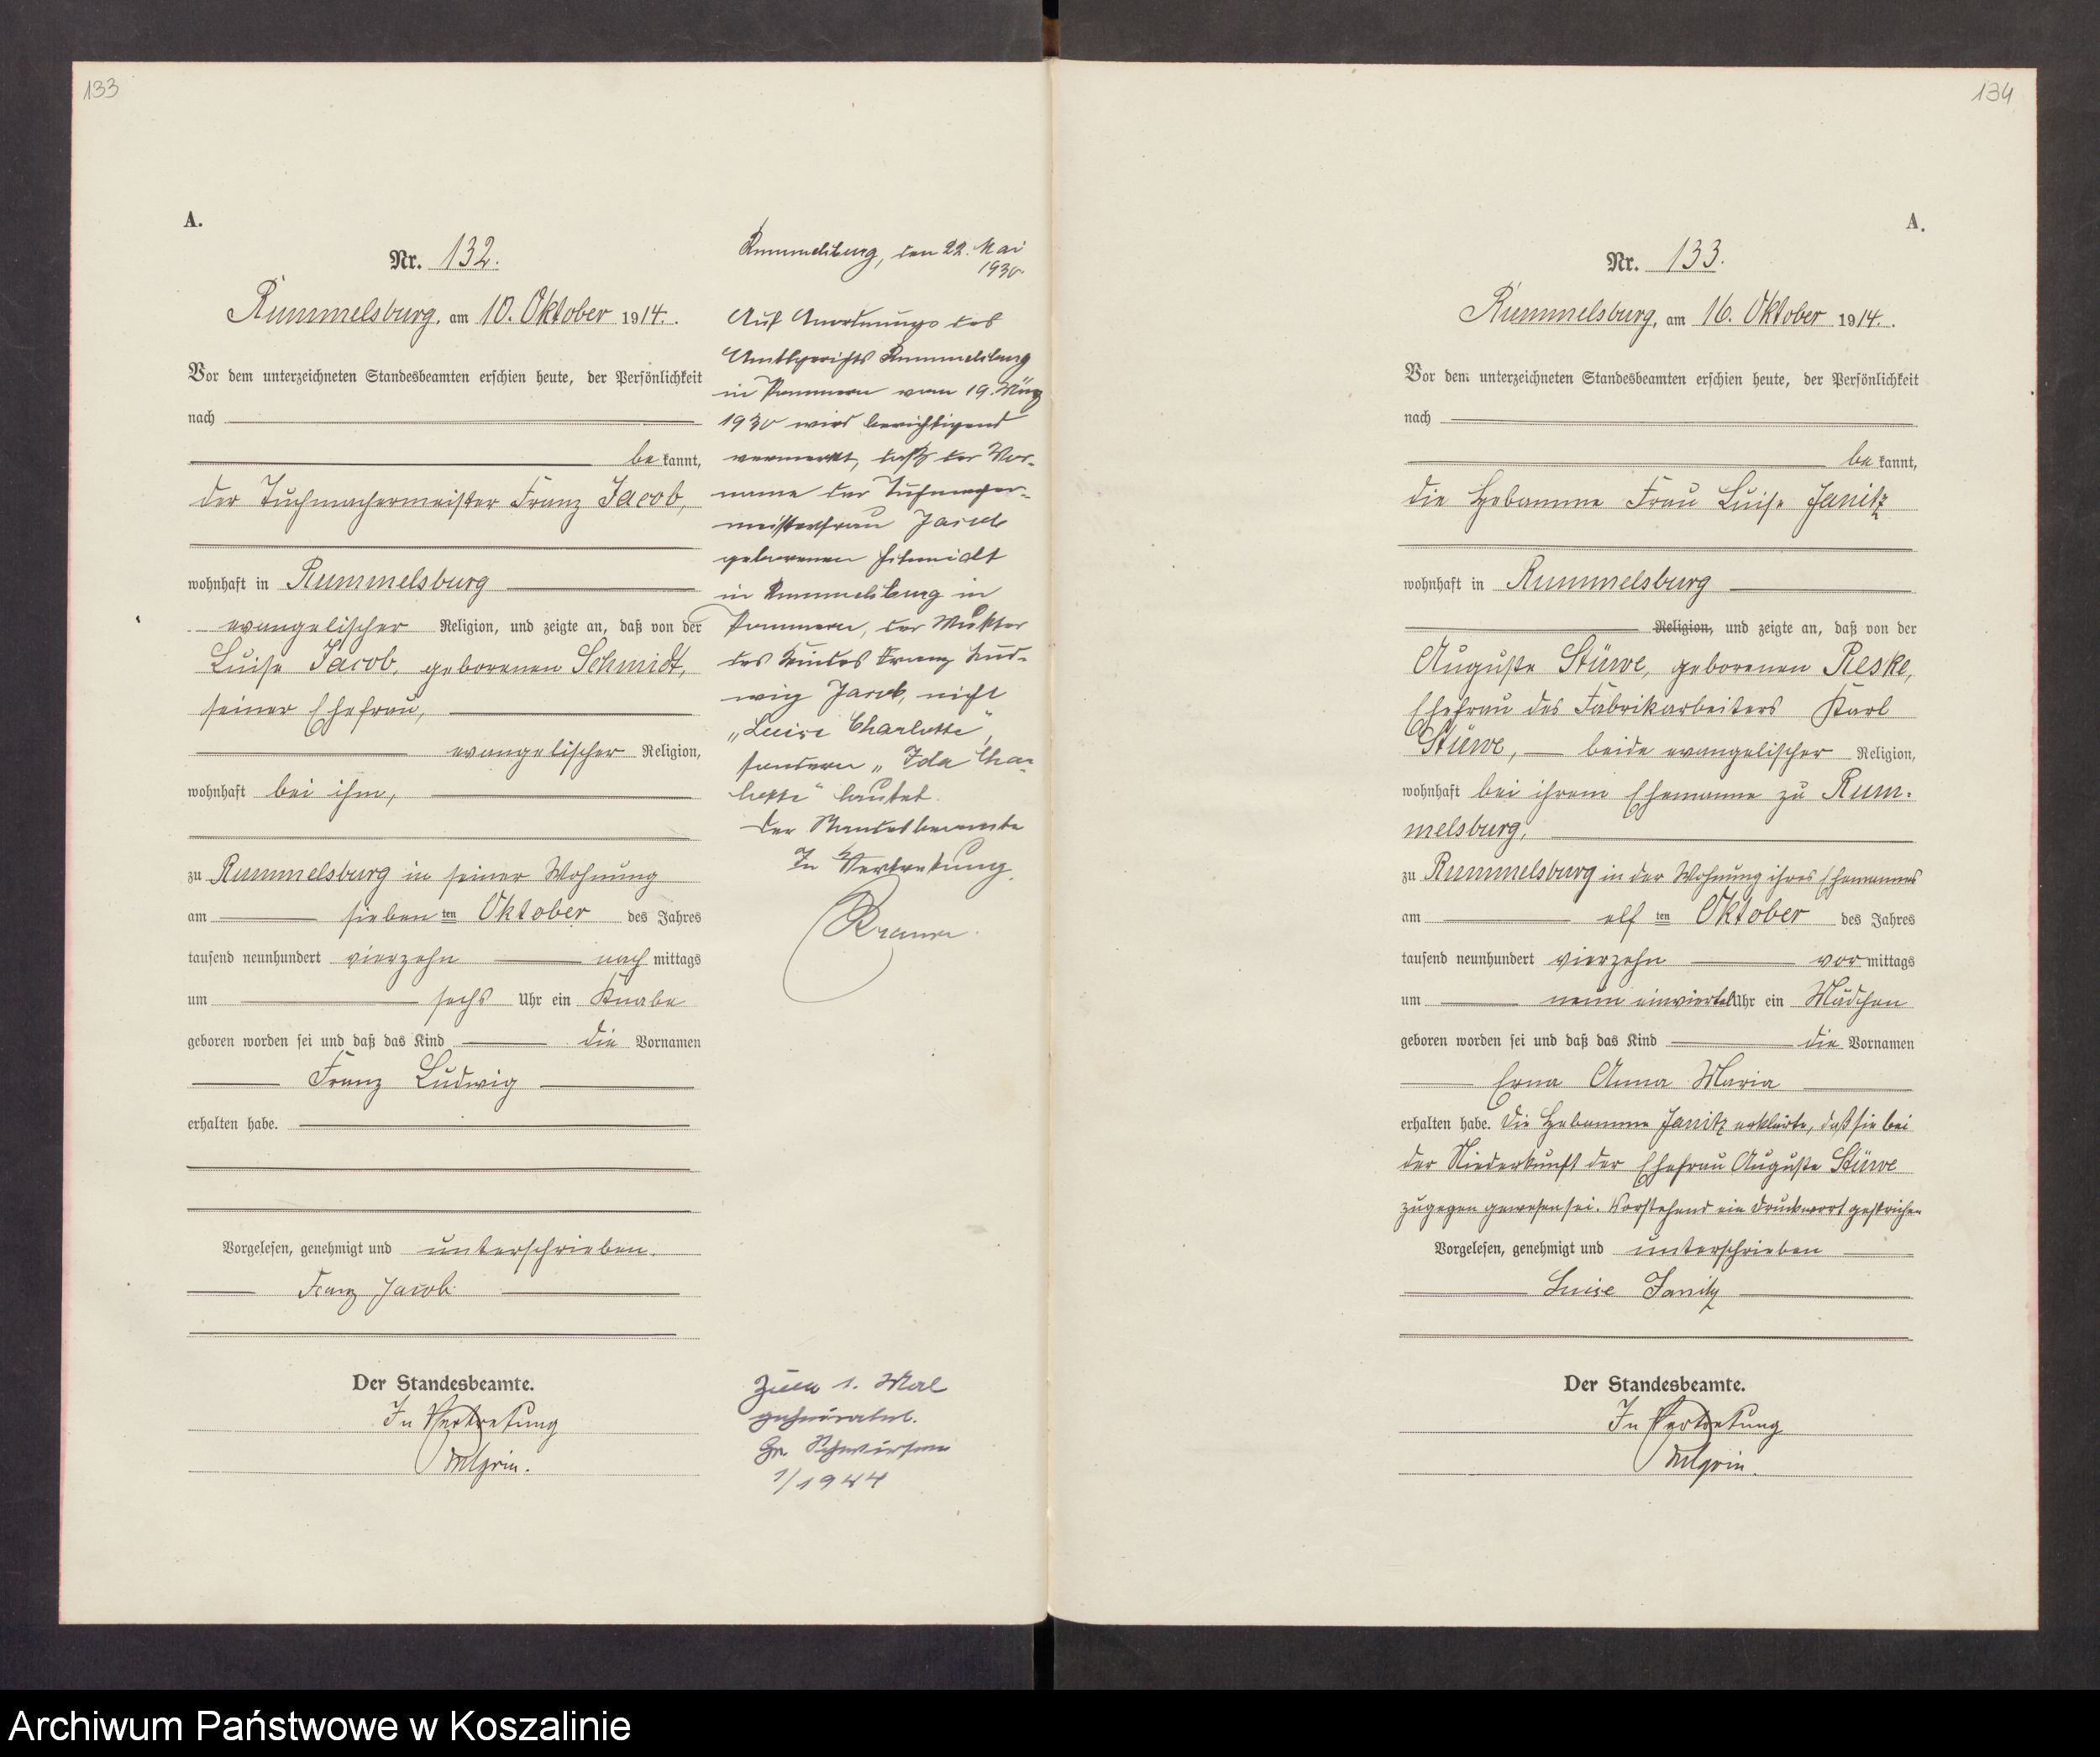 133
A.
Nr. 132.
Rummelsburg, am 10. Oktober 1914.
Vor dem unterzeichneten Standesbeamten erschien heute, der Persönlichkeit
nach
be kannt,
der Tuchmachermeister Franz Jacob,
wohnhaft in Rummelsburg
evangelischer Religion, und zeigte an, daß von der
Luise Jacob, geborenen Schmidt,
seiner Ehefrau,
evangelischer Religion,
wohnhaft bei ihm,
zu Rummelsburg in seiner Wohnung
am sieben ten Oktober des Jahres
tausend neunhundert vierzehn nach mittags
um sechs Uhr ein Knabe
geboren worden sei und daß das Kind die Vornamen
Franz Ludwig
erhalten habe.
Vorgelesen, genehmigt und unterschrieben.
Franz Jacob
Der Standesbeamte.
In Vertretung
Rummelsburg, den 22. Mai
1930
Auf Anordnung des
Amtsgerichts Rummelsburg
in Pommern vom 19. März
1930 wird berichtigend
vermerkt, daß der Vor-
name der Tuchmacher-
meisterfrau Jacob
geborenen Schmidt
in Rummelsburg in
Pommern, der Mutter
des Kindes Franz Lud-
wig Jacob, nicht
„Luise Charlotte",
sondern „Ida Char-
lotte" lautet.
Der Standesbeamte
In Vertretung.
Zum 1. Mal
geheiratet.
Gr. Schwirsen
1/1944
134
A.
Nr. 133.
Rummelsburg, am 16. Oktober 1914.
Vor dem unterzeichneten Standesbeamten erschien heute, der Persönlichkeit
nach
be kannt,
die Hebamme Frau Luise Janitz
wohnhaft in Rummelsburg
Religion, und zeigte an, daß von der
Auguste Stüwe, geborenen Reske,
Ehefrau des Fabrikarbeiters Karl
Stüwe, beide evangelischer Religion,
wohnhaft bei ihrem Ehemanne zu Rum-
melsburg,
zu Rummelsburg in der Wohnung ihres Ehemannes
am elf ten Oktober des Jahres
tausend neunhundert vierzehn vor mittags
um neun einviertel Uhr ein Mädchen
geboren worden sei und daß das Kind die Vornamen
Erna Anna Maria
erhalten habe. Die Hebamme Janitz erklärte, daß sie bei
der Niederkunft der Ehefrau Auguste Stüwe
zugegen gewesen sei. Vorstehend ein Druckwort gestrichen
Vorgelesen, genehmigt und unterschrieben
Luise Janitz
Der Standesbeamte.
In Vertretung
Archiwum Państwowe w Koszalinie